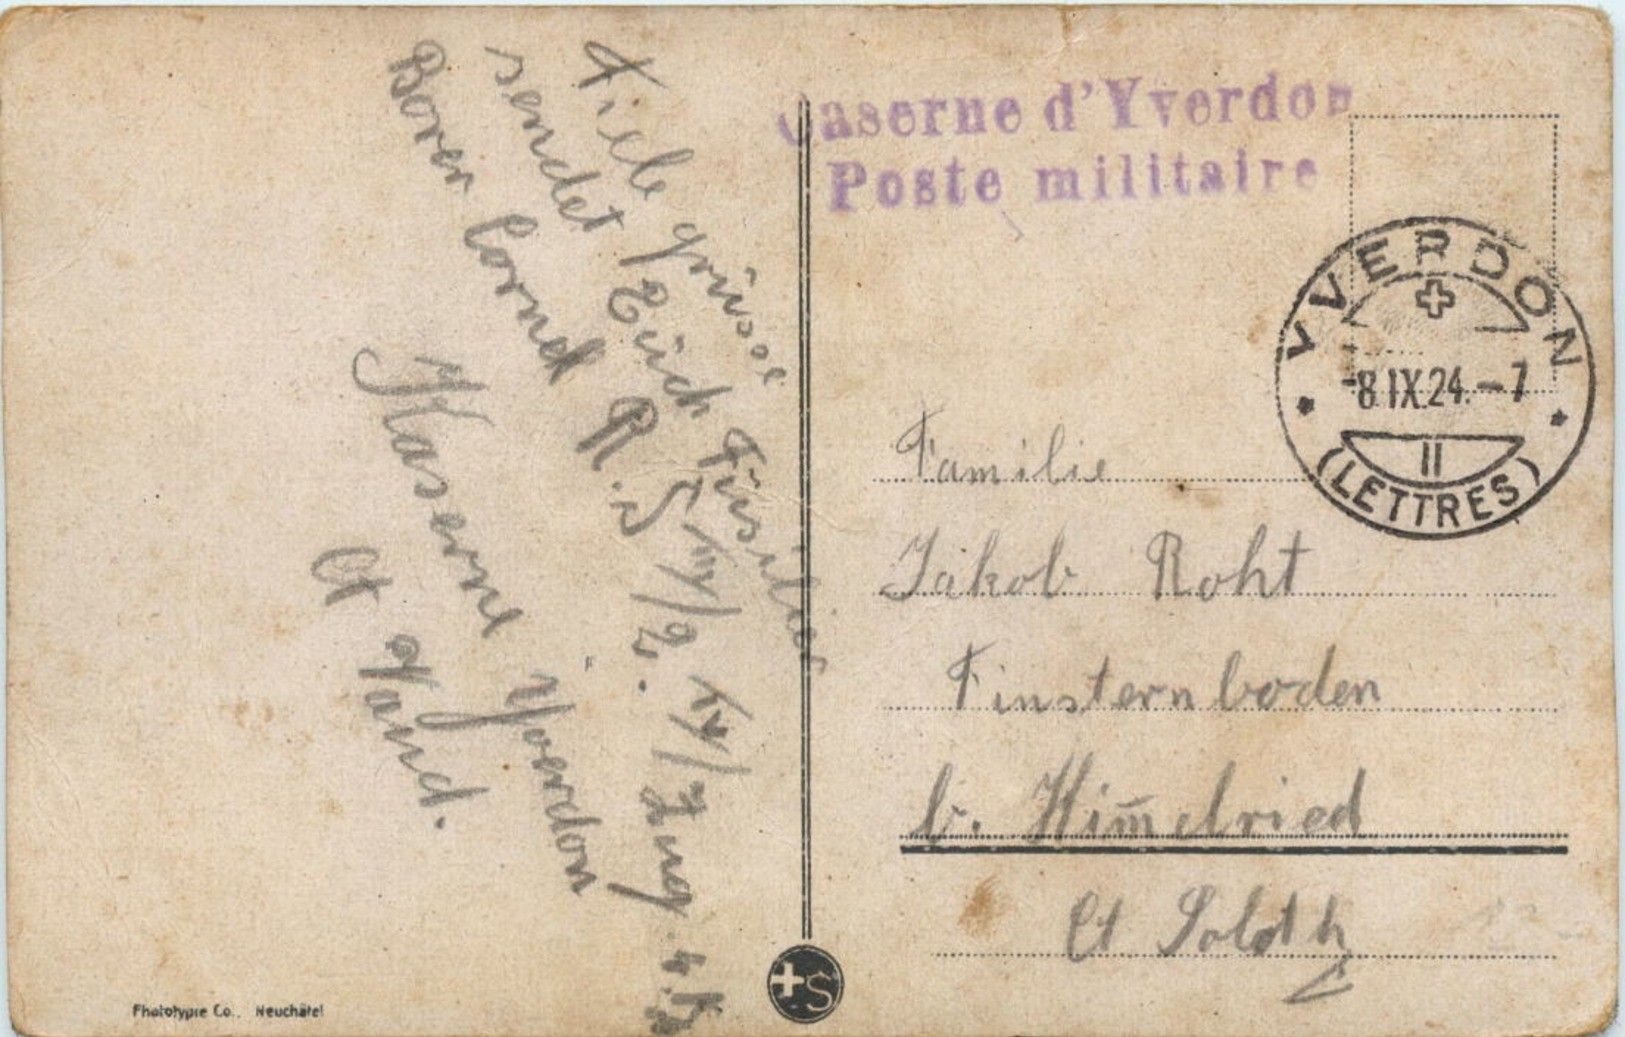 Viele grüsse
sendet Euch Füsilier
Borer Cornel R.S. IV/2. IV/ Zug. 4. D
Kaserne Yverdon
Ct Vaud.
Caserne d'Yverdon
Poste militaire
YVERDON
-8.IX.24.-7
II
(LETTRES)
Familie
Jakob Roht
Finsternboden
b. Him̅elried
Ct Soloth
S
Phototypie Co., Neuchâtel